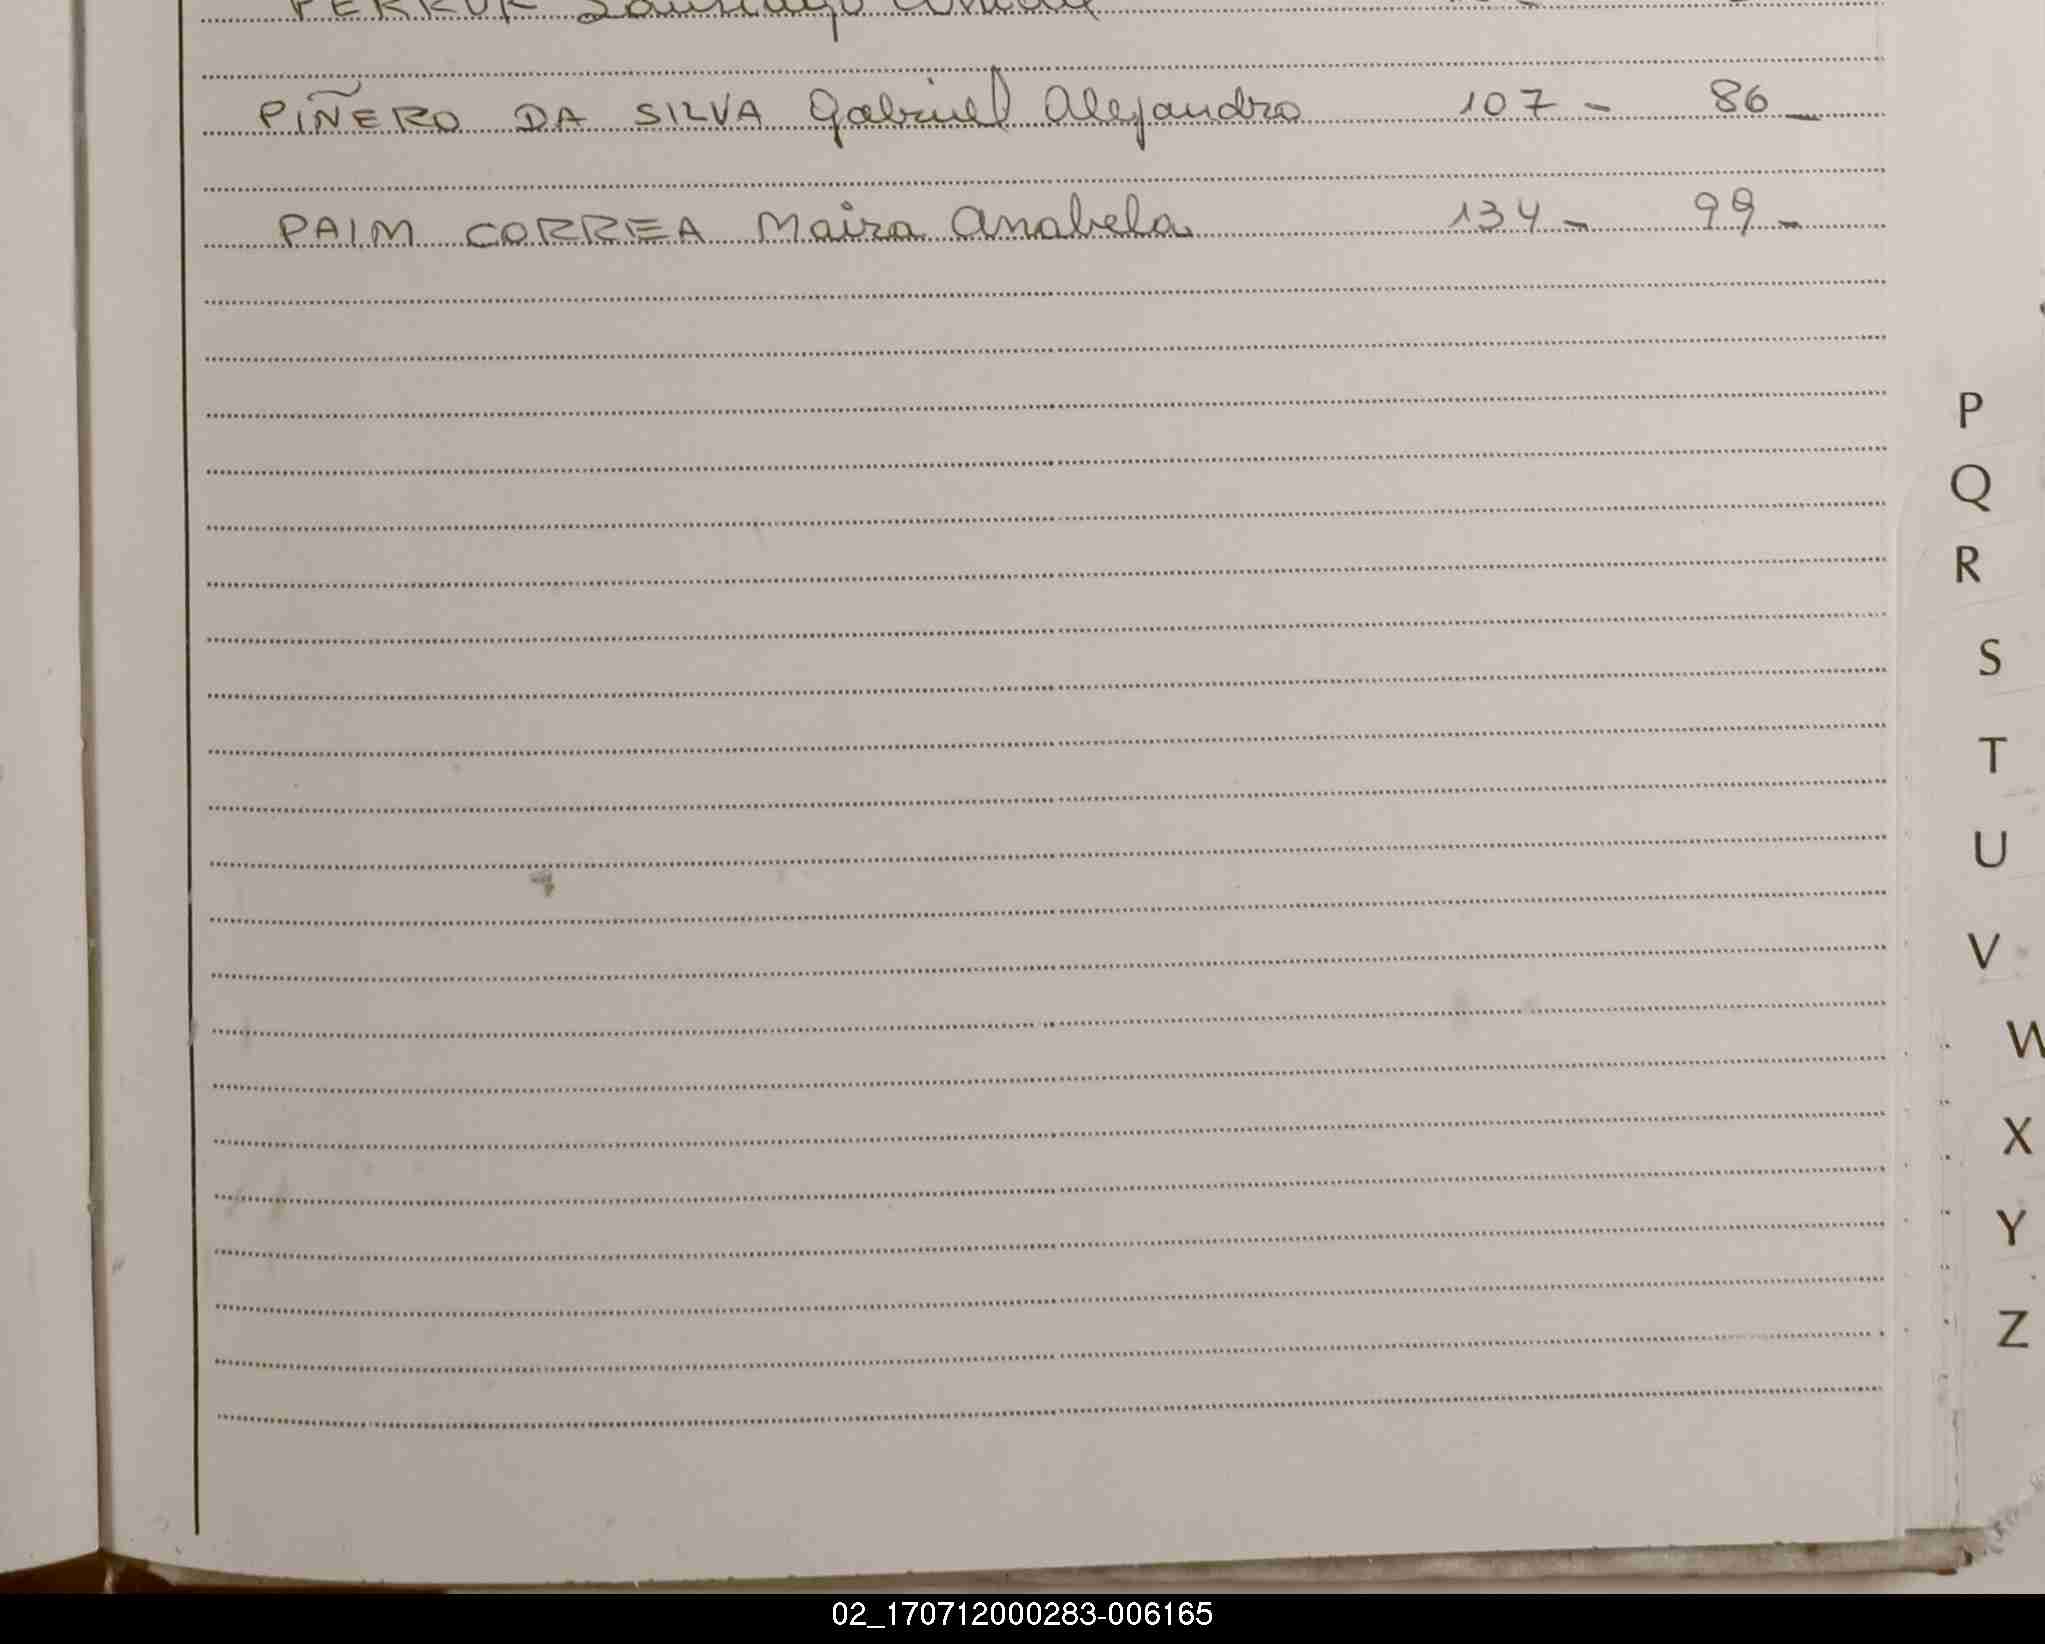 PIÑERO DA SILVA Gabriel Alejandro 107 - 86 -
PAIM CORREA Maira Anabela 134 - 99 -
P
Q
R
S
T
U
V
W
X
Y
Z
02_170712000283-006165